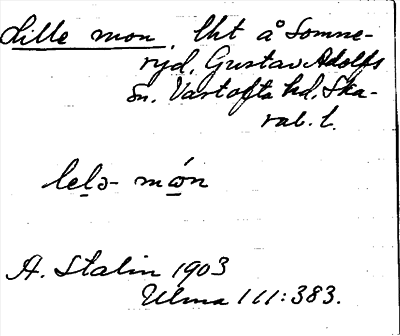 Lille mon, lht å Somne-
ryd, Gustav Adolfs
sn. Vartofta hd. Ska-
rab. l.
lelə- món
A. Stalin 1903
Ulma 111:383.